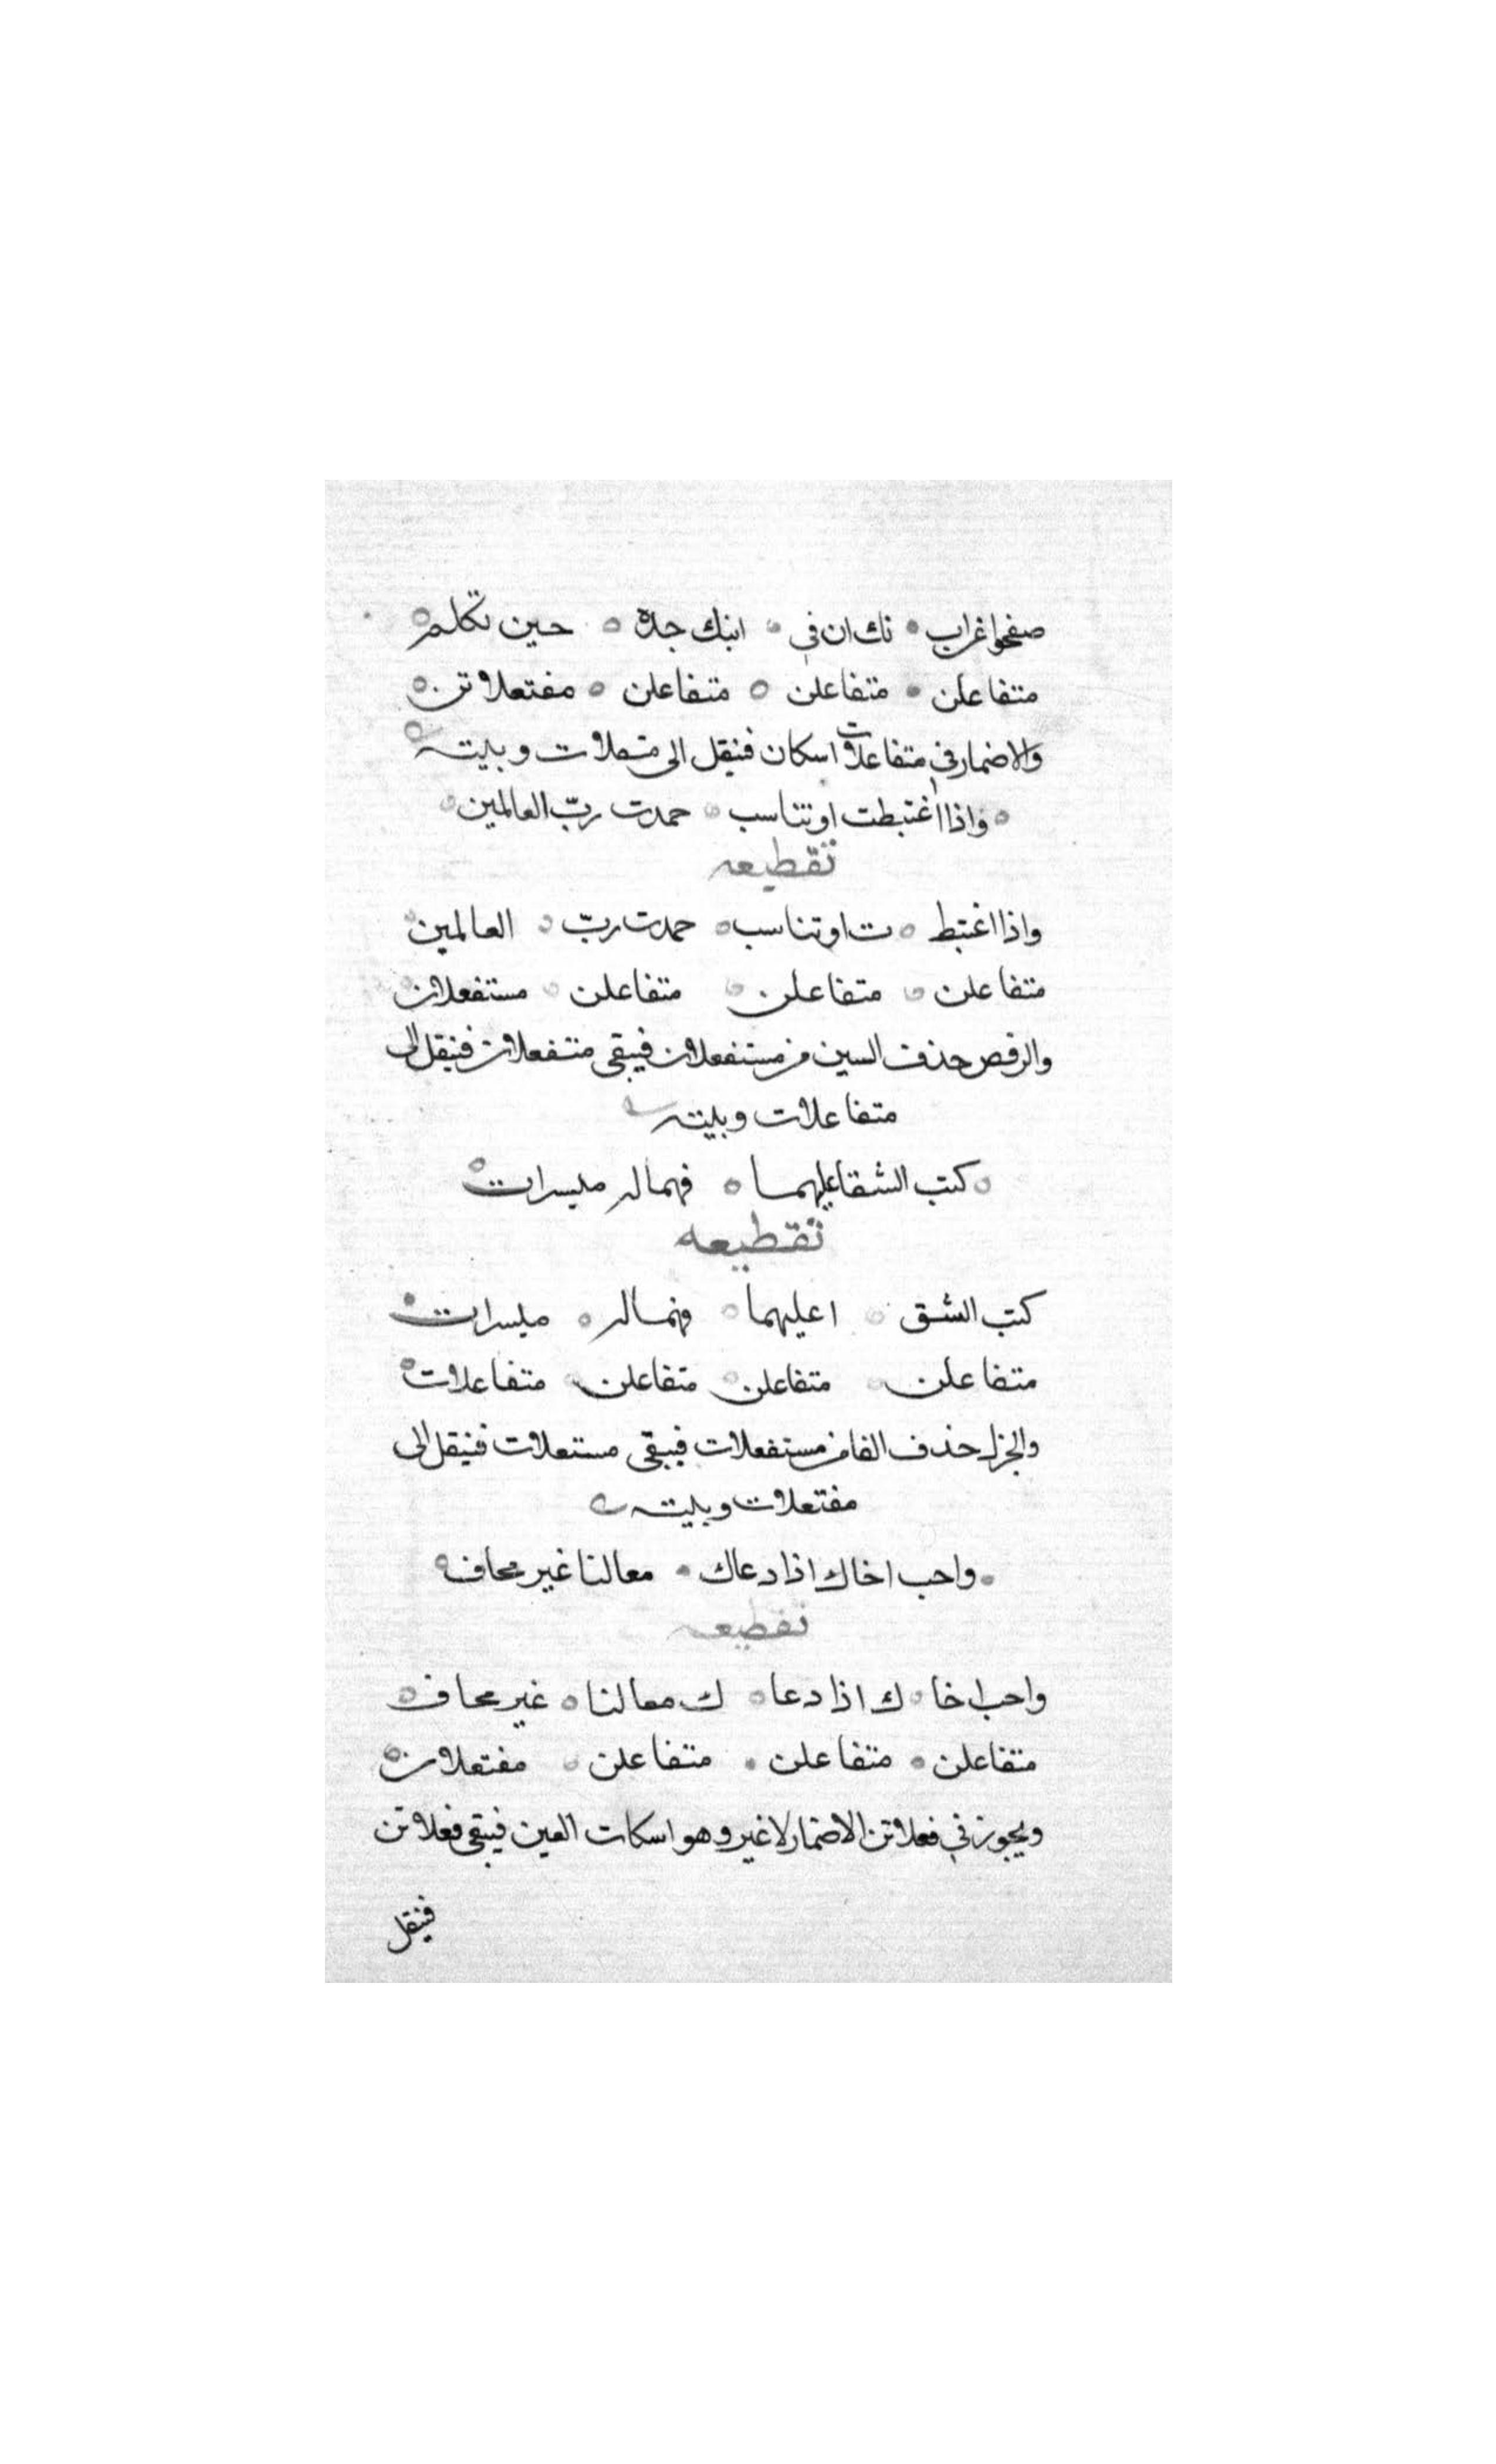 صفحوا غراب ٥ نك ان في ٥ ابنك جدة ٥ حين تكلم ٥
متفاعلن ٥ متفاعلن ٥ متفاعلن ٥ مفتعلاتن ٥
والاضمار في متفاعلات اسكان فنيقل الى وبيته
٥ واذا اغتبطت او تتناسب ٥ حمدت ربّ العالمين ٥
تقطيعه
واذا اغتبط ٥ ت او تناسب ٥ حمدت ربّ ٥ العالمين ٥
متفاعلن ٥ متفاعلن ٥ متفاعلن ٥ مستفعلان ٥
والرقص حذف السين من مستفعلان فيبقى متفعلان فنيقل الى
متفاعلات وبيته
٥ كتب الشقا عليهما ٥ فهما له ميسرات ٥
تقطيعه
كتب الشق ٥ ا عليهما ٥ فهماله ٥ ميسرات ٥
متفاعلن ٥ متفاعلن ٥ متفاعلن ٥ متفاعلات ٥
والجزل حذف الفا من مستفعلات فيبقى مستعلات فنيقل الى
مفتعلات وبيته
٥ واحب اخاك اذا دعاك ٥ معالنا غير محاف ٥
تقطيعه
واحب اخا ٥ ك اذا دعا ٥ ك معالنا ٥ غير محاف ٥
متفاعلن ٥ متفاعلن ٥ متفاعلن ٥ مفتعلان ٥
ويجوز في فعلاتن الاضمار لا غير وهو اسكات العين فيبقى فعلاتن
فنيقل